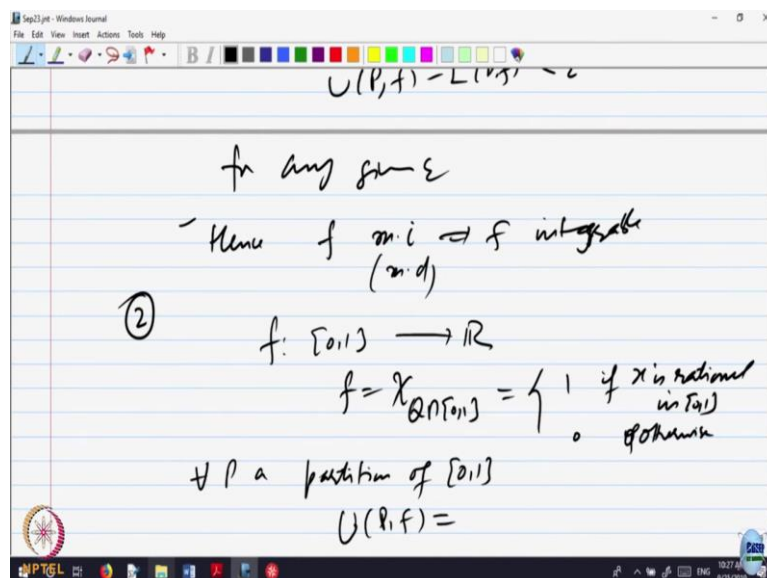 Sep23.jnt - Windows Journal
File Edit View Insert Actions Tools Help
U(P,f) - L(P,f) < ε
for any given ε
Hence f m.i ⇒ f integrable
(m.d)
②
f: [0,1] ⟶ ℝ
f = χ_{Q∩[0,1]} = { 1 if x is rational
in [0,1]
0 otherwise
∀ P a partition of [0,1]
U(P,f) =
NPTEL
ENG
10:27 A